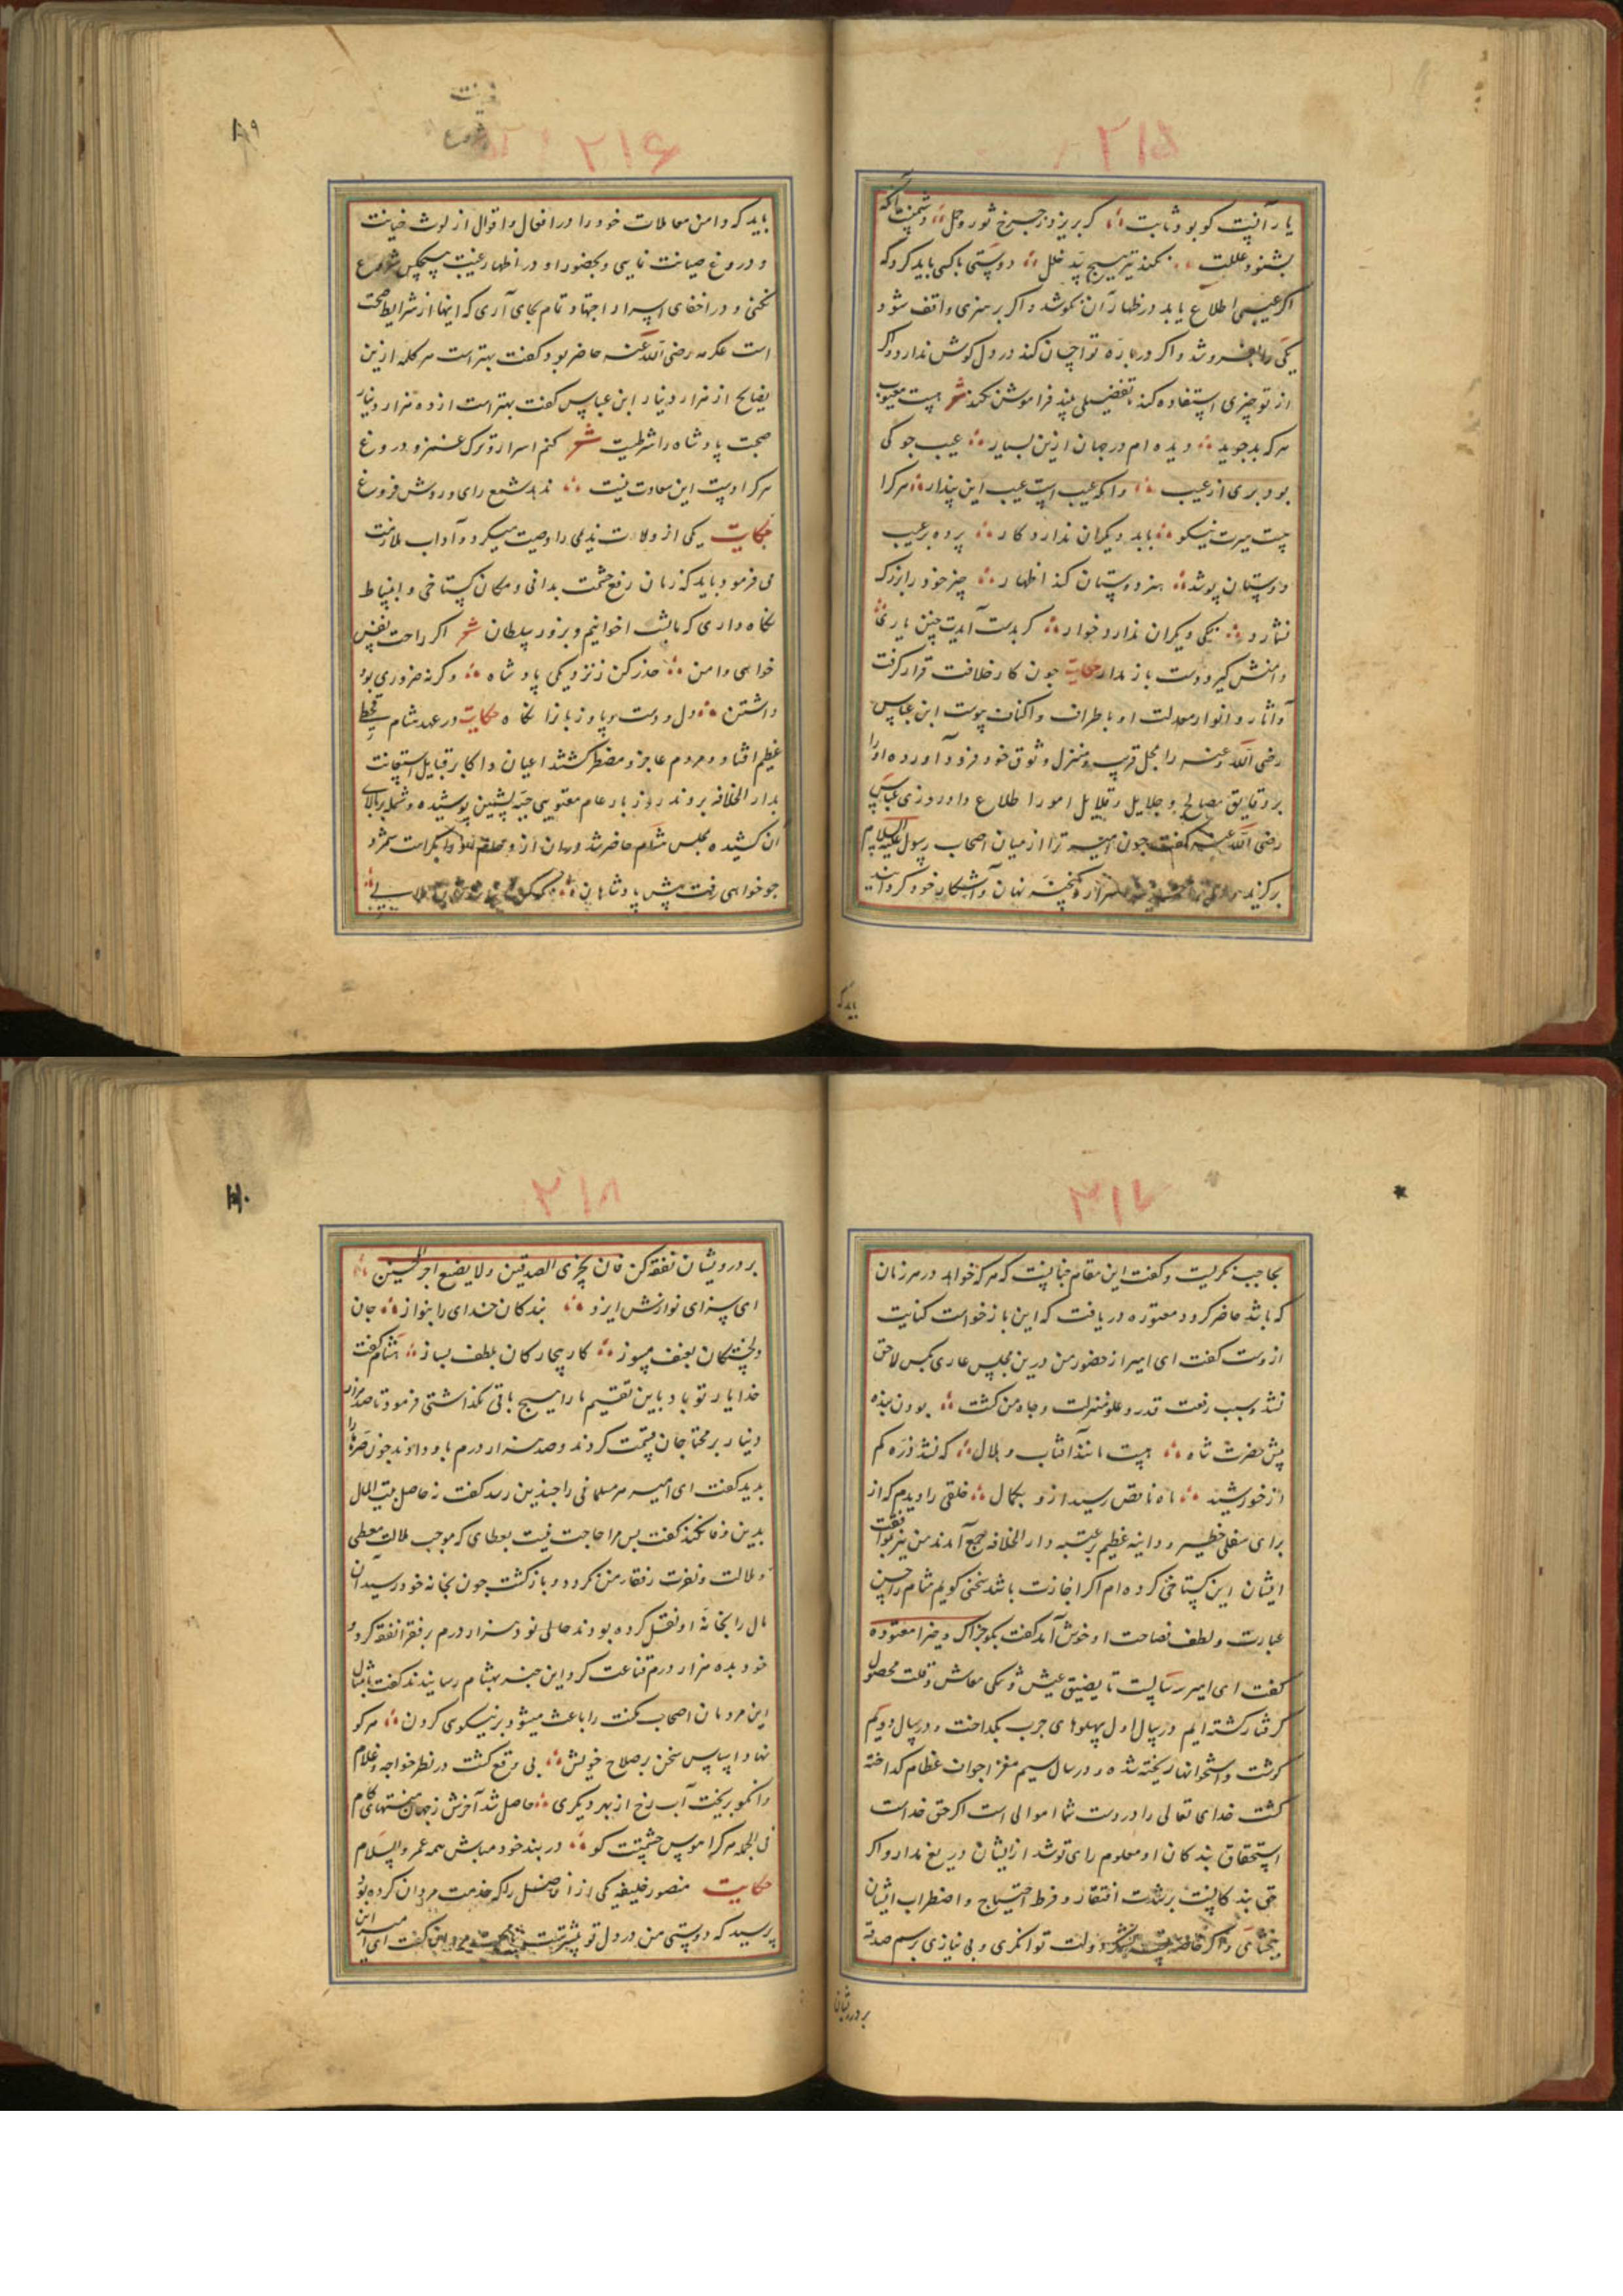 ۲۱۵
یار آنست کو بود ثابت کر بریزد ز چرخ ثور و حمل دشمنت آنکه
بشنود عللت نکند تیر هیچ پند خلل دوستی با کسی باید کرد که
اکر عیبی اطلاع یابد در ظهار آن نکوشد و اکر بر هنری واقف شود
یکی را بفروشد و اکر درباره تو احسان کند در دل کوش ندارد و اکر
از تو چیزی استفاده کند تفضیلی بیند فراموش نکند شعر هست معیوب
هر که بد جوید دیده ام در جهان ازین بسیار عیب جو کی
بود بری از عیب وانکه عیب است عیب این پندار هر کرا
چست سیرت نیکو باید دیکران ندارد کار پرده بر عیب
دوستان پوشد هنر دوستان کند اظهار چیز خود را بزرک
نشمارد نیکی دیکران ندارد خوار کر بدست آیدت چنین یاری
دامنش کیر و دست باز مدار حکایت چون کار خلافت قرار کرفت
و آثار و انوار معدلت او باطراف و اکناف پیوست ابن عباس
رضی الله عنه را بمحل قرب و منزل وثوق خود فرود آورد و او را
بر دقایق مصالح و جلایل و قلایل امور اطلاع داد روزی عباس
رضی الله عنه کفت چون امیر ترا از میان اصحاب رسول علیه السلام
برکزید نهان و آشکار خود کردانید
باید که
فینت
۲۱۶
۸۹
باید که دامن معاملات خود را در افعال و اقوال از لوث خیانت
و دروغ صیانت نمایی و بحضور او در اظهار غیبت هیچکس شروع
نکنی و در اخفای اسرار اجتهاد تمام بجای آری که اینها از شرایط صحبت
است عکرمه رضی الله عنه حاضر بود کفت بهتر است هر کلمه ازین
نصایح از هزار دینار ابن عباس کفت بهتر است از ده هزار دینار
صحبت پادشاه را شرطیت شعر کتم اسرار و ترک غمز و دروغ
هر کرا وست این سعادت نیست ندهد شمع رای و روش فروغ
حکایت یکی از ولات ندیمی را وصیت میکرد و آداب ملازمت
می فرمود باید که زمان رفع حشمت بدانی و مکان کستاخی و انبساط
نکاه داری که مالیث اخوانیم و بر زور سلطان شعر اکر راحت نفس
خواهی و امن حذر کن ز نزدیکی پادشاه وکرنه ضروری بود
داشتن دل و دست و پا و زبانرا نکاه حکایت در عهد هشام قحطی
عظیم افتاد و مردم عاجز و مضطر کشتند اعیان و اکابر قبایل استعانت
بدار الخلافه بروند روز بار عام معتوبی جبه پشمین پوشیده و شمله بر بالای
آن کشیده بمجلس هشام حاضر شد
چو خواهی رفت پیش پادشاهان
۲۱۷
بحاجب نکریست و کفت این مقام جنابیست که هر که خواهد در هر زمان
که باشد حاضر کردد معتوده دریافت که این بازخواست کنایت
ازوست کفت ای امیر از حضور من درین مجلس عاری بکس لاحق
نشد و سبب رفعت قدر و علو منزلت و جاه من کشت بودن بنده
پیش حضرت شاه هست مانند آفتاب و هلال که نشد ذره کم
از خورشید ماه ناقص رسید ازو بکمال خلقی را دیدم که از
برای سغلی خطیر و داینه عظیم بر عتبه دار الخلافه جمع آمدند من نیز بموافقت
ایشان این کستاخی کرده ام اکر اجازت باشد سخنی کویم هشام را حسن
عبارت و لطف فصاحت او خوش آمد کفت بکو جزاک خیرا معتوده
کفت ای امیر سه سالست تا بضیق عیش و تنکی معاش و قلت محصول
کرفتار کشته ایم در سال اول پهلوهای چرب بکداخت و در سال دویم
کوشت و استخوانها ریخته شد و در سال سیم مغز اجواف عظام کداخته
کشت خدای تعالی را در دست شما اموالی است اکر حق خداست
استحقاق بندکان او معلوم رای تو شد ازیشان دریغ مدار و اکر
حق بندکانست بر شدت افتقار و فرط احتیاج و اضطراب ایشان
ببخشای و اکر دولت توانکری و بی نیازی برسم صدقه
بر درویشان
۲۱۸
بر درویشان تفقد کن فان یجزی الصدقین ولا یضیع اجر المحسنین
ای سزای نوازش ایزد بندکان خدای را بنواز جان
دلخستکان بعنف مسوز کار بیچارکان بلطف بساز هشام کفت
خدا یار تو باد باین تقسیم ما را هیچ باقی نکذاشتی فرمود تا صد هزار
دینار بر محتاجان قسمت کردند و صد هزار درم باو دادند چون صره را
بدید کفت ای امیر هر مسلمانی را چندین رسد کفت نه حاصل بیت المال
بدین وفا نکند کفت بس مرا حاجت نیست بعطای که موجب ملالت معطی
و ملالت و نفرت رفقاء من کردد و بازکشت چون بخانه خود رسید آن
مال را بخانه او نقل کرده بودند حالی نود هزار درم بر فقرا نفقه کرد و
خود بده هزار درم قناعت کرد این خبر بهشام رسانیدند کفت امثال
این مردمان اصحاب مکنت را باعث میشود بر نیکوی کردن هر کو
نهاد اساس سخن بر صلاح خویش بی وقع کشت در نظر خواجه و غلام
وانکو بریخت آب رخ از بهر دیکری حاصل شد آخرش ز جهان منتهای کام
فی الجمله هر کرا هوس حشمتت کو در بند خود مباش همه عمر والسلام
حکایت منصور خلیفه یکی از افاضل را که خدمت مروان کرده بود
پرسید که دوستی من در دل تو بیشترست کفت ای امیر این